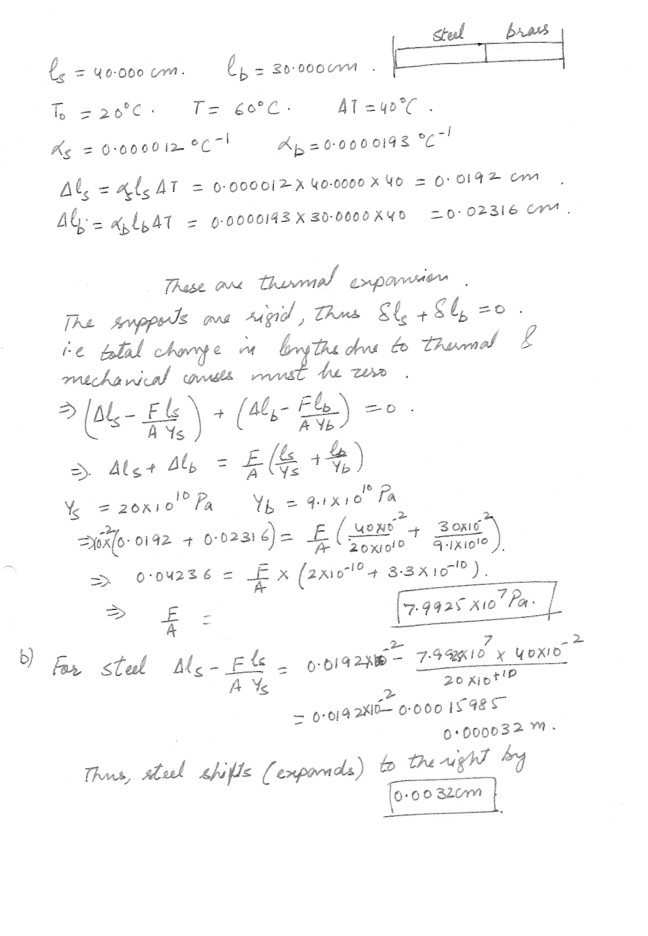 steel brass
ls = 40.000 cm. lb = 30.000cm.
T₀ = 20°C. T = 60°C. ΔT = 40°C.
αs = 0.000012 °C⁻¹ αb = 0.0000193 °C⁻¹
Δls = αs ls ΔT = 0.000012 X 40.0000 X 40 = 0.0192 cm.
Δlb = αb lb ΔT = 0.0000193 X 30.0000 X 40 = 0.02316 cm.
These are thermal expansion.
The supports are rigid, Thus δls + δlb = 0.
i.e total change in lengths due to thermal &
mechanical causes must be zero.
⇒ (Δls - F ls / A Ys) + (Δlb - F lb / A Yb) = 0.
⇒. Δls + Δlb = F/A (ls/Ys + lb/Yb)
Ys = 20X10¹⁰ Pa Yb = 9.1X10¹⁰ Pa
⇒10⁻²X(0.0192 + 0.02316) = F/A (40X10⁻² / 20X10¹⁰ + 30X10⁻² / 9.1X10¹⁰).
⇒ 0.04236 = F/A X (2X10⁻¹⁰ + 3.3X10⁻¹⁰).
⇒ F/A = 7.9925 X10⁷ Pa.
b) For steel Δls - F ls / A Ys = 0.0192X10⁻² - 7.9925X10⁷ X 40X10⁻² / 20X10⁺¹⁰
= 0.0192X10⁻² - 0.00015985
0.000032 m.
Thus, steel shifts (expands) to the right by
0.0032cm.